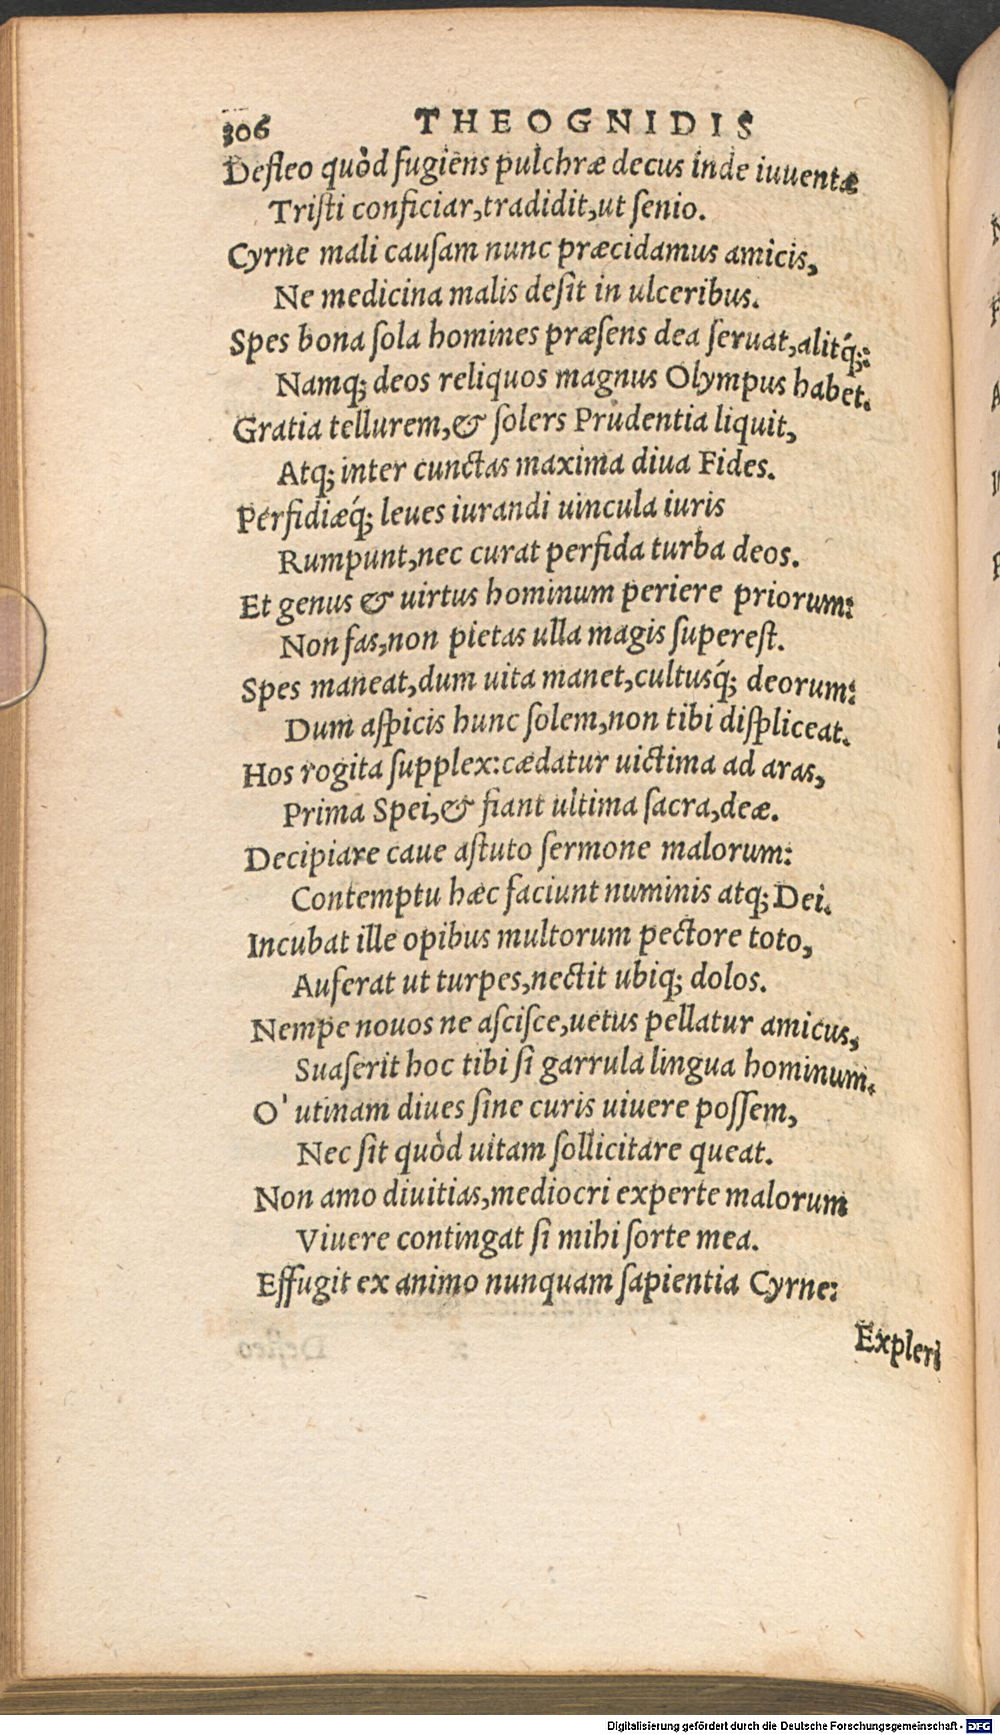 306 THEOGNIDIS
Defleo quòd fugiens pulchræ decus inde iuuentæ
Triſti conficiar, tradidit, ut ſenio.
Cyrne mali cauſam nunc præcidamus amicis,
Ne medicina malis deſit in ulceribus.
Spes bona ſola homines præſens dea ſeruat, alitq́;:
Namq; deos reliquos magnus Olympus habet.
Gratia tellurem, & ſolers Prudentia liquit,
Atq; inter cunctas maxima diua Fides.
Perfidiæq́; leues iurandi uincula iuris
Rumpunt, nec curat perfida turba deos.
Et genus & uirtus hominum periere priorum:
Non fas, non pietas ulla magis ſupereſt.
Spes maneat, dum uita manet, cultusq́; deorum:
Dum aſpicis hunc ſolem, non tibi diſpliceat.
Hos rogita ſupplex: cædatur uictima ad aras,
Prima Spei, & fiant ultima ſacra, deæ.
Decipiare caue aſtuto ſermone malorum:
Contemptu hæc faciunt numinis atq; Dei.
Incubat ille opibus multorum pectore toto,
Auferat ut turpes, nectit ubiq; dolos.
Nempe nouos ne aſciſce, uetus pellatur amicus,
Suaſerit hoc tibi ſi garrula lingua hominum.
O' utinam diues ſine curis uiuere poſſem,
Nec ſit quòd uitam ſollicitare queat.
Non amo diuitias, mediocri experte malorum
Viuere contingat ſi mihi ſorte mea.
Effugit ex animo nunquam ſapientia Cyrne:
Expleri
Digitalisierung gefördert durch die Deutsche Forschungsgemeinschaft - DFG